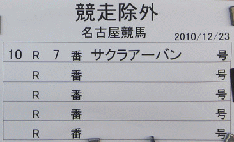 競走除外
名古屋競馬 2010/12/23
10 R 7 番 サクラアーバン 号
R 番 号
R 番 号
R 番 号
R 番 号